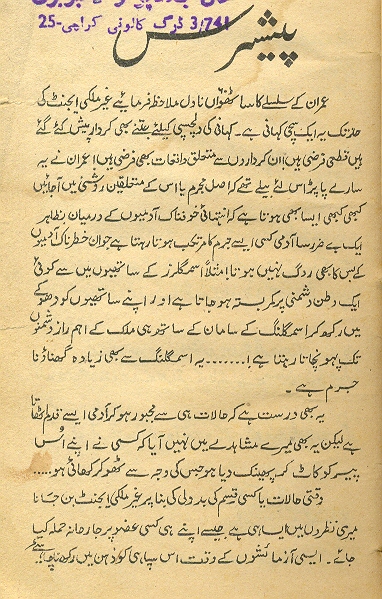 3/741 ڈرگ کالونی کراچی-25
پیشرس
عمران کے سلسلے کا ساٹھواں ناول ملاحظہ فرمائیے غیر ملکی ایجنٹ کی
حد تک یہ ایک سچی کہانی ہے۔ کہانی کی دلچسپی کیلئے جتنے بھی کردار پیش کئے گئے
ہیں قطعی فرضی ہیں! ان کرداروں سے متعلق واقعات بھی فرضی ہیں! عمران نے یہ
سارے پاپڑ اس لئے بیلے تھے کہ اصل مجرم یا اس کے متعلقین روشنی میں آجائیں
کبھی کبھی ایسا بھی ہوتا ہے کہ انتہائی خوفناک آدمیوں کے درمیان بظاہر
ایک بے ضرر سا آدمی کسی ایسے جرم کا مرتکب ہوتا رہتا ہے جو ان خطرناک آدمیوں
کے بس کا بھی روگ نہیں ہوتا! مثلاً اسمگلرز کے ساتھیوں میں سے کوئی
ایک وطن دشمنی پر کمربستہ ہو جاتا ہے اور اپنے ساتھیوں کو دھوکے
میں رکھ کر اسمگلنگ کے سامان کے ساتھ ہی ملک کے اہم راز دشمنوں
تک پہونچاتا رہتا ہے!....... یہ اسمگلنگ سے بھی زیادہ گھناؤنا
جرم ہے۔
یہ بھی درست ہے کہ حالات ہی سے مجبور ہو کر آدمی ایسے قدم اٹھاتا
ہے لیکن یہ بھی میرے مشاہدے میں نہیں آیا کہ کسی نے اپنے اُس
پیر کو کاٹ کر پھینک دیا ہو جس کی وجہ سے ٹھوکر کھائی ہو.....
وقتی حالات یا کسی قسم کی بددلی کی بنا پر غیر ملکی ایجنٹ بن جانا
میری نظروں میں ایسا ہی ہے جیسے اپنے ہی کسی عضو پر جارحانہ حملہ کیا
جائے۔ ایسی آزمائشوں کے وقت اس سپاہی کو ذہن میں رکھنا چاہیئے